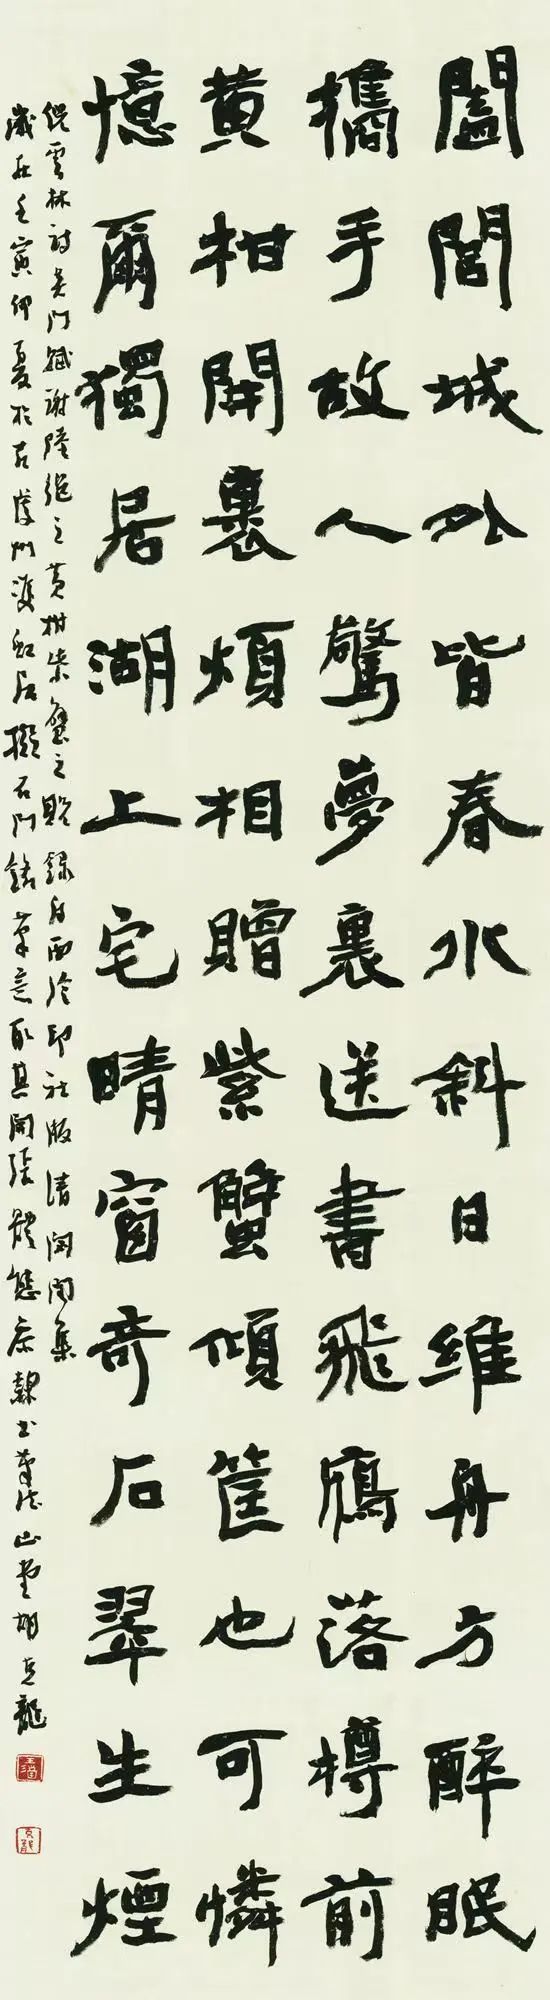 闔閭城外皆春水斜日維舟方醉眠
攜手故人驚夢裏送書飛鴈落樽前
黄柑開裏煩相贈紫蟹傾筐也可憐
憶爾獨居湖上宅晴窗奇石翠生煙
倪雲林詩吳門賦謝陸繼之黄柑紫蟹之貺錄自西泠印社版清閟閣集
歲在壬寅仲夏於古 門 石門銘筆意取其開張體態 隸書筆法 山堂胡 龍